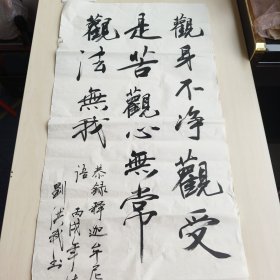 觀身不净觀受
是苦觀心無常
觀法無我
恭録釋迦牟尼
語 丙戌年
劉
书